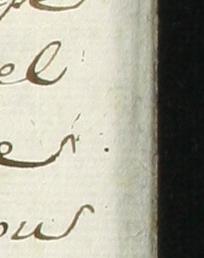 el
es.
ous